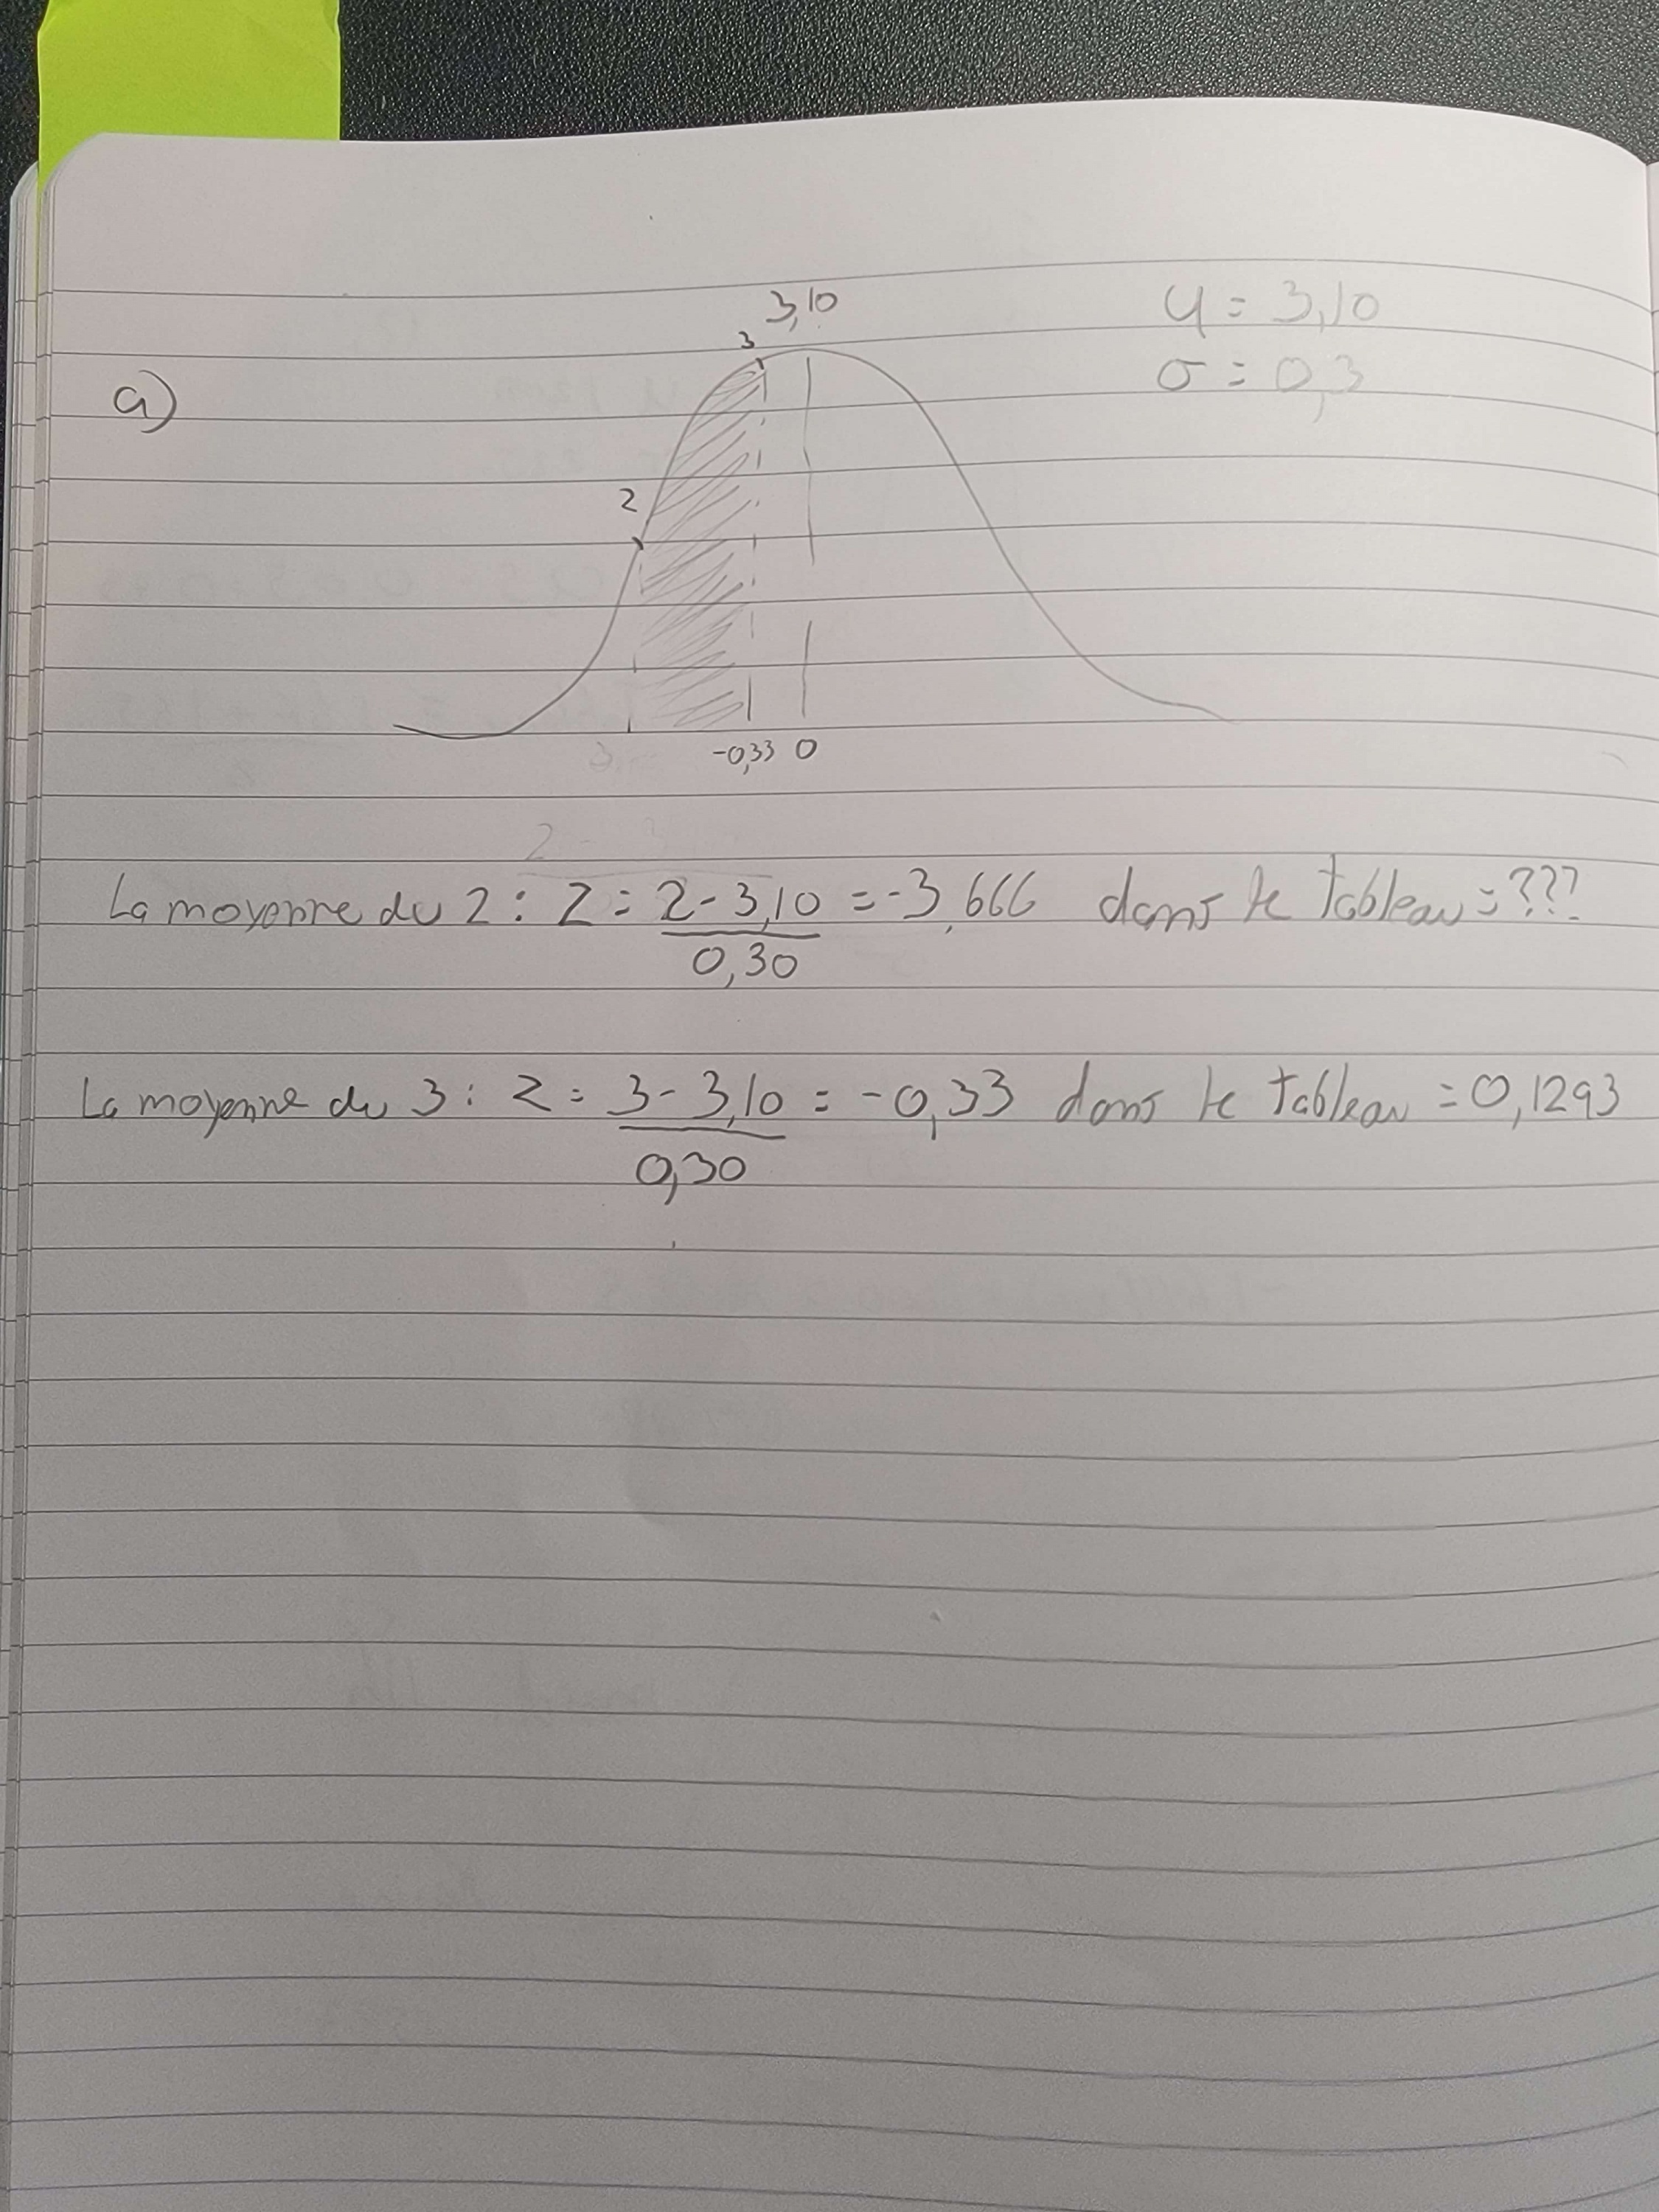 3,10
3
μ = 3,10
σ = 0,3
a)
2
-0,33 0
La moyenne du 2 : Z = 2 - 3,10 = -3,666 dans le tableau = ???
0,30
La moyenne du 3 : Z = 3 - 3,10 = -0,33 dans le tableau = 0,1293
0,30